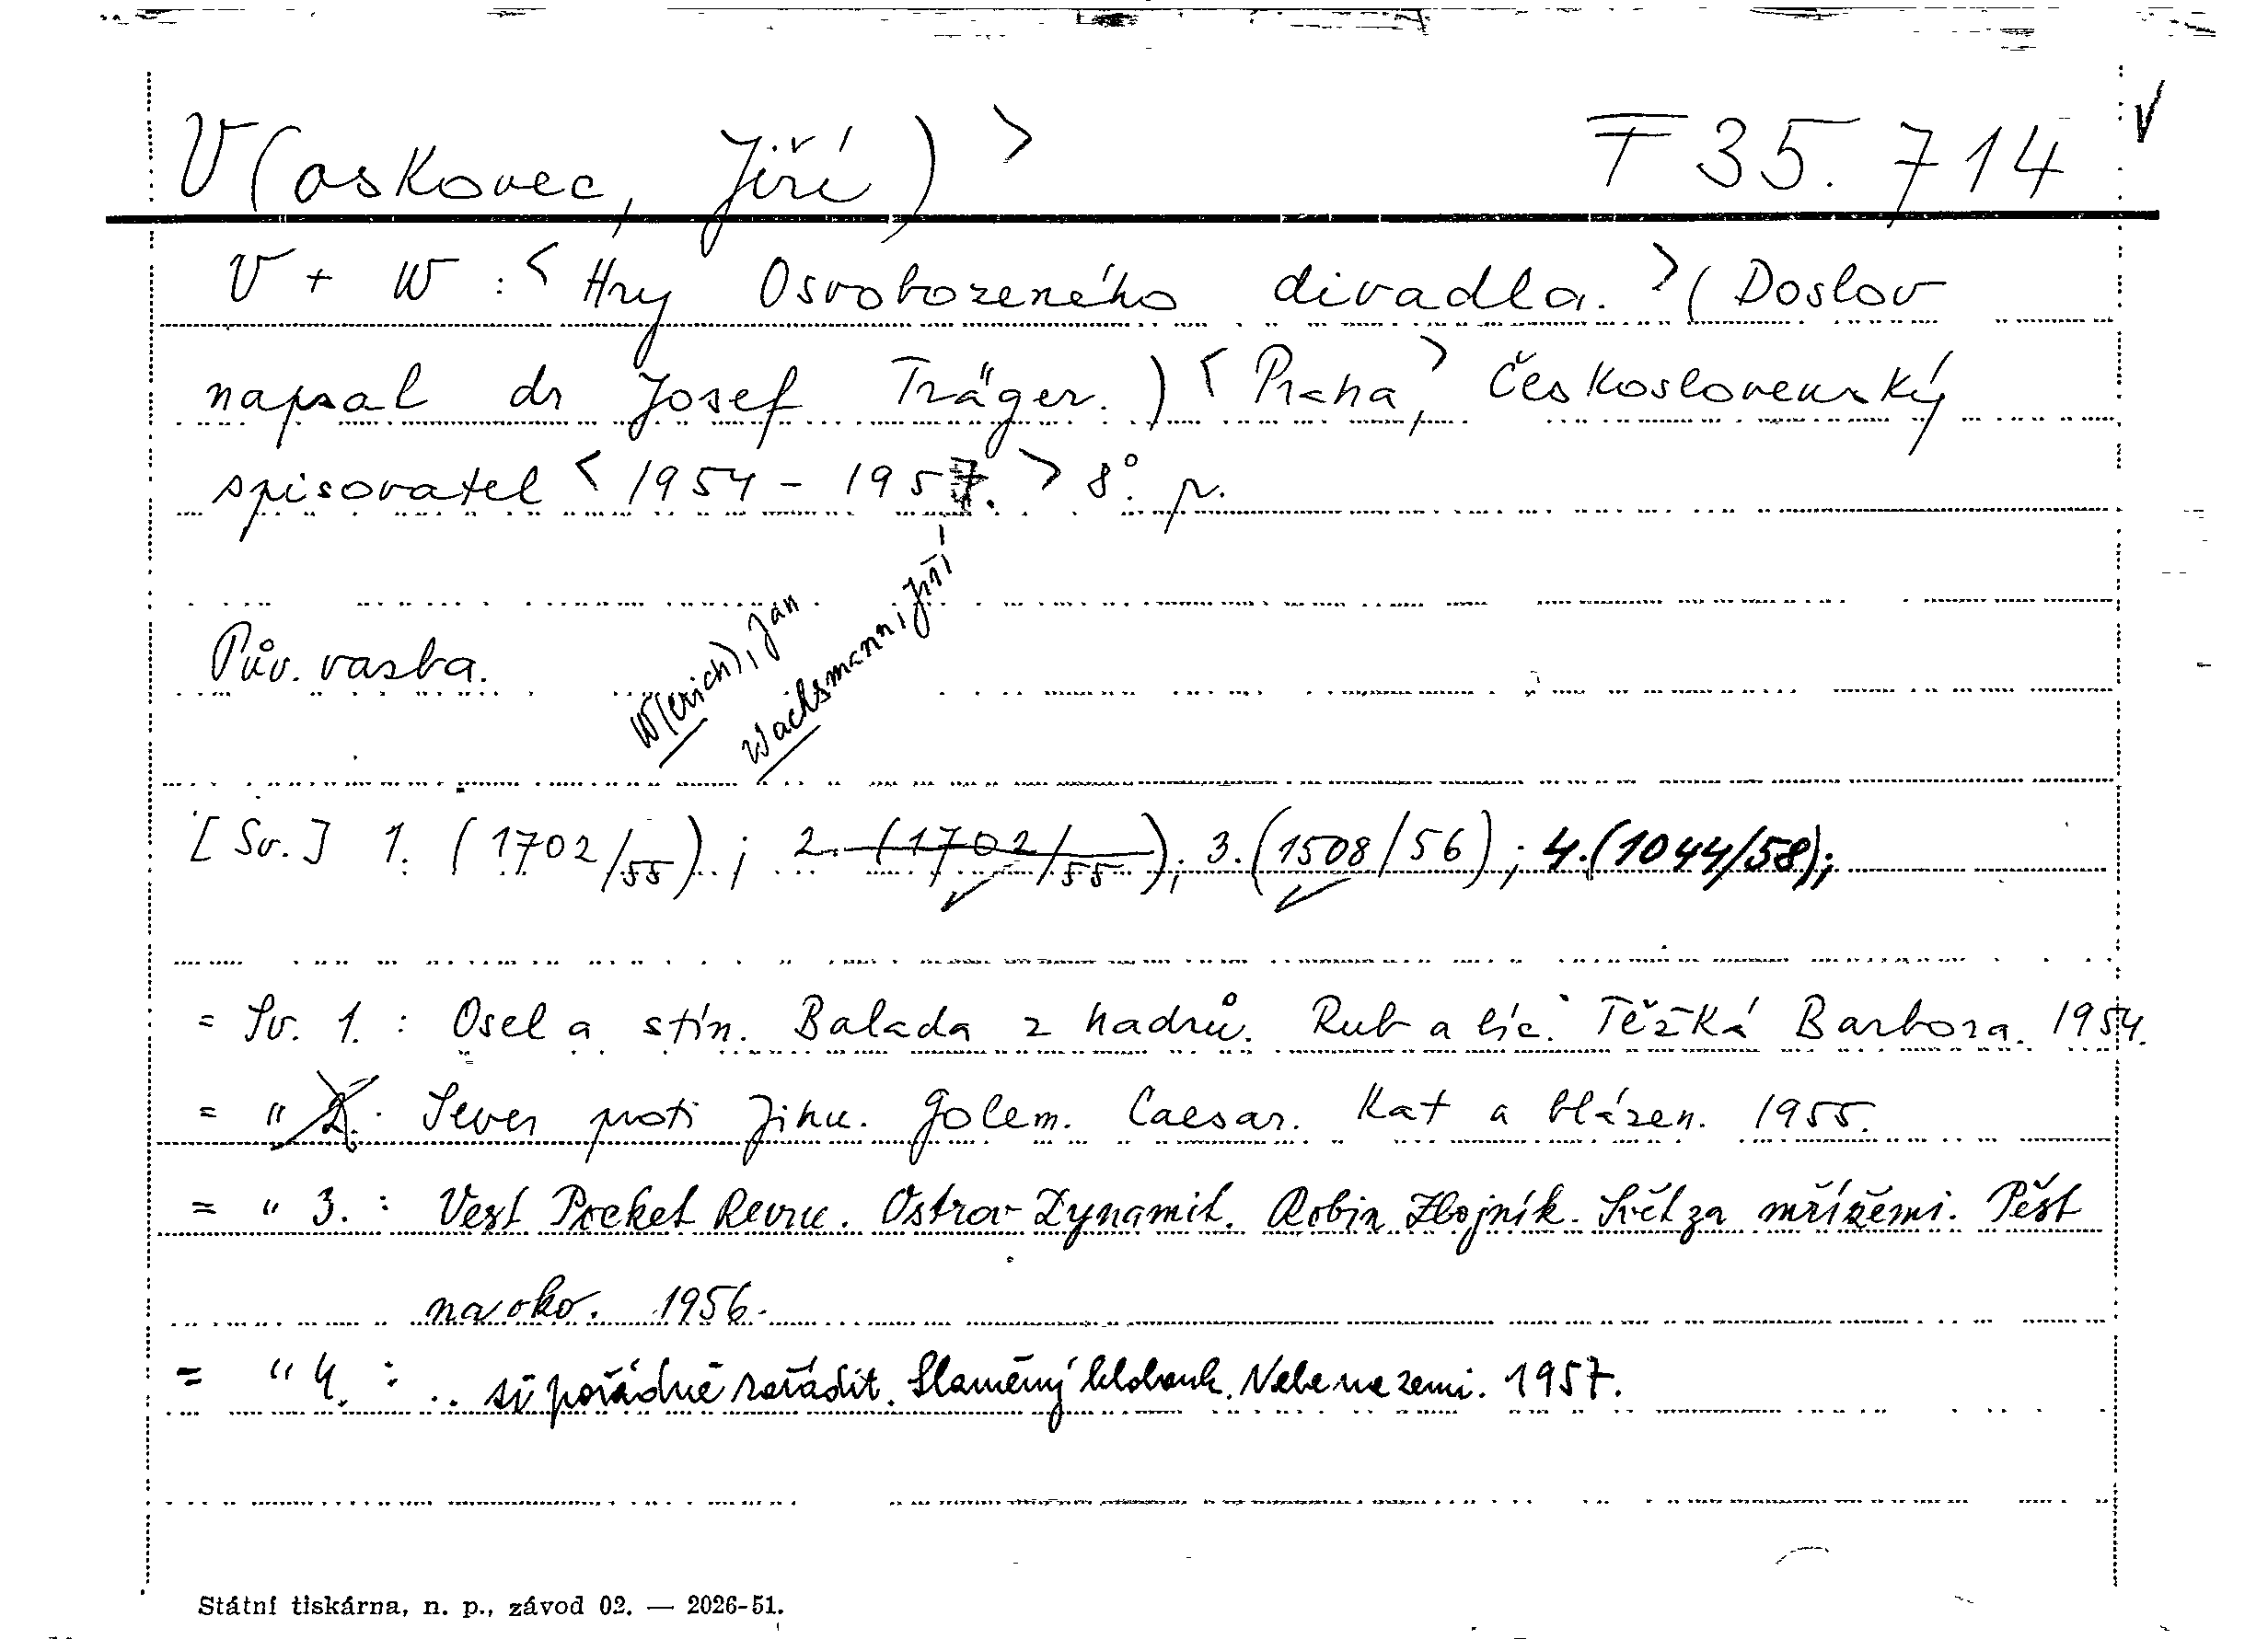 V(oskovec, Jiří) > F 35.714 V
V + W : < Hry Osvobozeného divadla. > (Doslov
napsal dr Josef Träger.) < Praha, > Československý
spisovatel < 1954 - 1957. > 8°. p.
W(erich), Jan
Wachsmann, Jiří
Pův. vazba.
[Sv.] 1. (1702/55); 2. (1702/55); 3. (1508/56); 4. (1044/58);
= Sv. 1. : Osel a stín. Balada z hadrů. Rub a líc. Těžká Barbora. 1954.
= " 2. Sever proti Jihu. Golem. Caesar. Kat a blázen. 1955.
= " 3. : Vest Pocket Revue. Ostrov Dynamit. Robin Zbojník. Svět za mřížemi. Pěst
na oko. 1956.
= " 4. : .. si pořádně zařádit. Slaměný klobouk. Nebe na zemi. 1957.
Státní tiskárna, n. p., závod 02. — 2026-51.